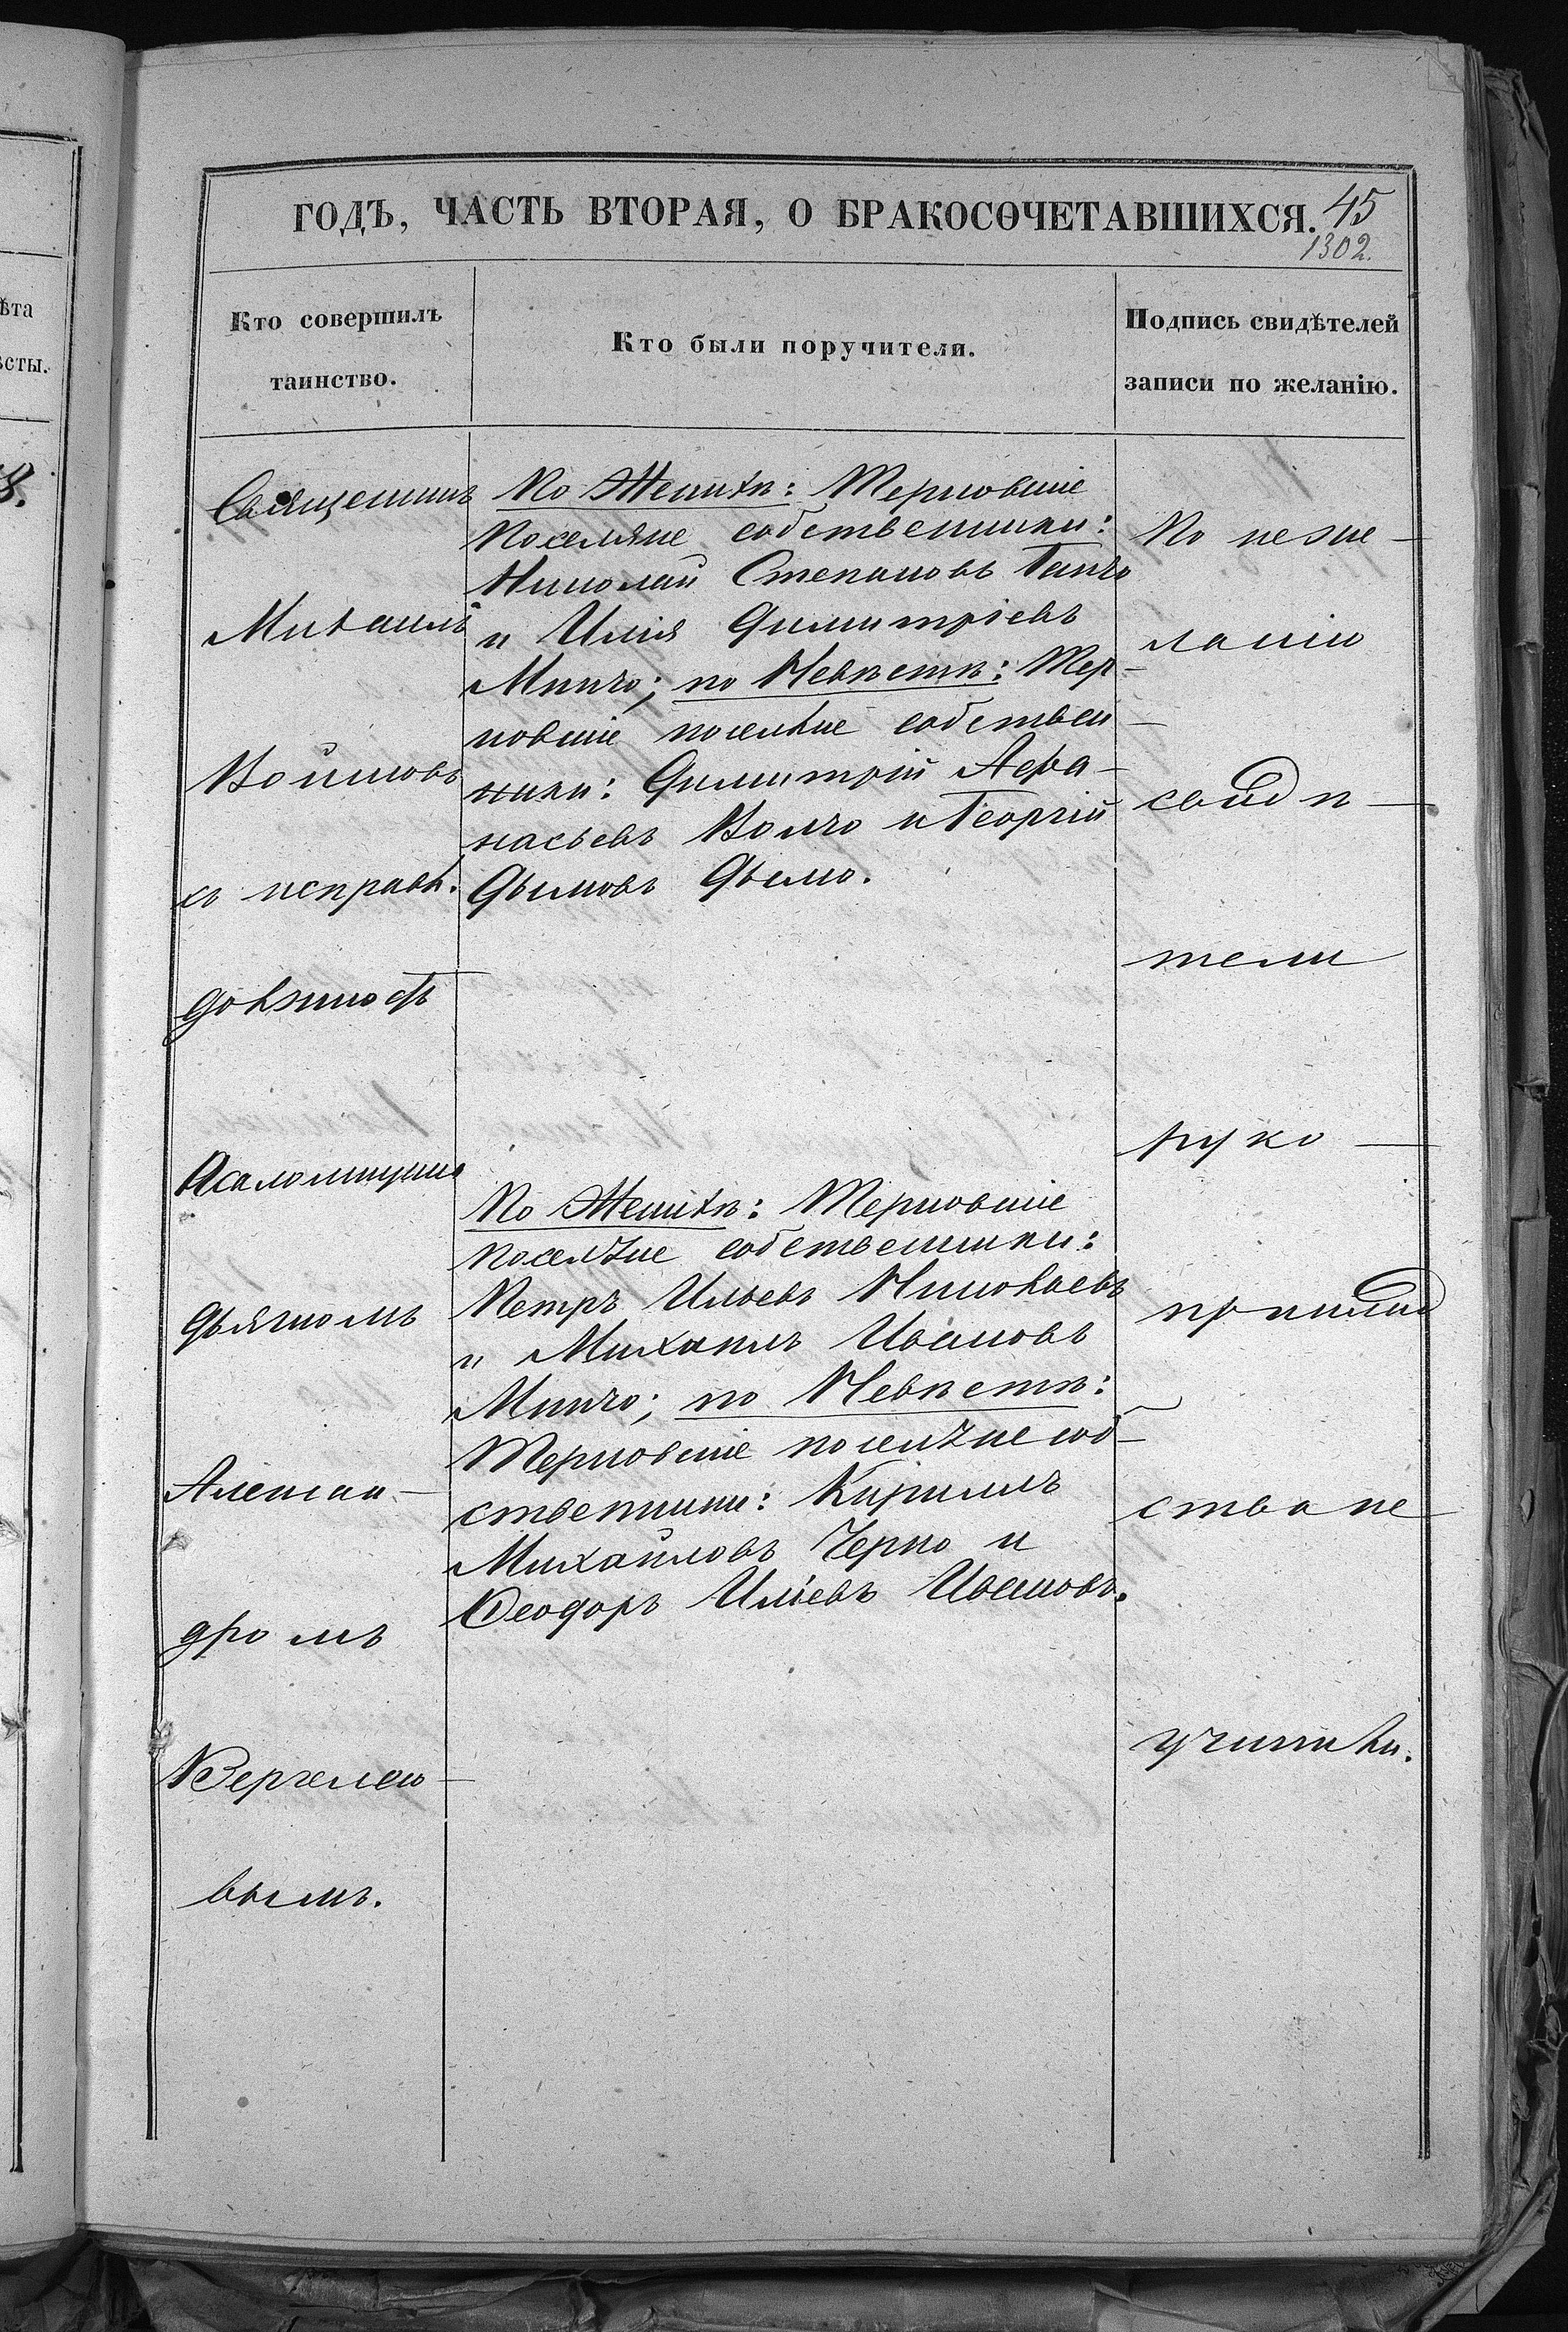 ѣта
ѣсты.
ГОДЪ, ЧАСТЬ ВТОРАЯ, О БРАКОСОЧЕТАВШИХСЯ.
45
1302.
Кто совершилъ
таинство.
Кто были поручители.
Подпись свидѣтелей
записи по желанію.
Священникъ
Михаилъ
Войновъ
съ исправл.
должность
Псаломщика
дьячкомъ
Алексан-
дромъ
Вержелео-
вымъ.
По Женихѣ: Терновскіе
поселяне собственники:
Николай Степановъ Ганчо
и Илія Димитріевъ
Минчо; по Невѣстѣ: Тер-
новскіе поселяне собствен-
ники: Димитрій Афа-
насьевъ Волчо и Георгій
Дымовъ Дымо.
По Женихѣ: Терновскіе
поселяне собственники:
Петръ Ильевъ Николаевъ
и Михаилъ Ивановъ
Минчо; по Невѣстѣ:
Терновскіе поселяне соб-
ственники: Кириллъ
Михайловъ Черно и
Ѳеодоръ Иліевъ Ивановъ.
По неже-
ланію
свидѣ-
тели
руко-
приклад
ства не
учинили.